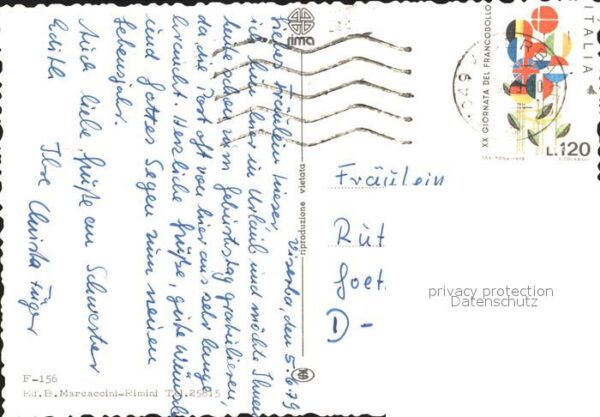 Viserba, den 5.6.79
Liebe Fräulein Hieser,
ich bin hier in Urlaub und möchte Ihnen
heute schon zum Geburtstag gratulieren,
da die Post oft von hier aus sehr lange
braucht. Herzliche Grüße, gute Wünsche
und Gottes Segen zum neuen
Lebensjahr.
Auch liebe Grüße an Schwester
Edith
Ihre Christa
rima
riproduzione vietata
XX GIORNATA DEL FRANCOBOLLO
ITALIA
L.120
Fräulein
Rut
Goet
D-
privacy protection
Datenschutz
F-156
Ed. B. Marcaccini-Rimini Tel. 25815